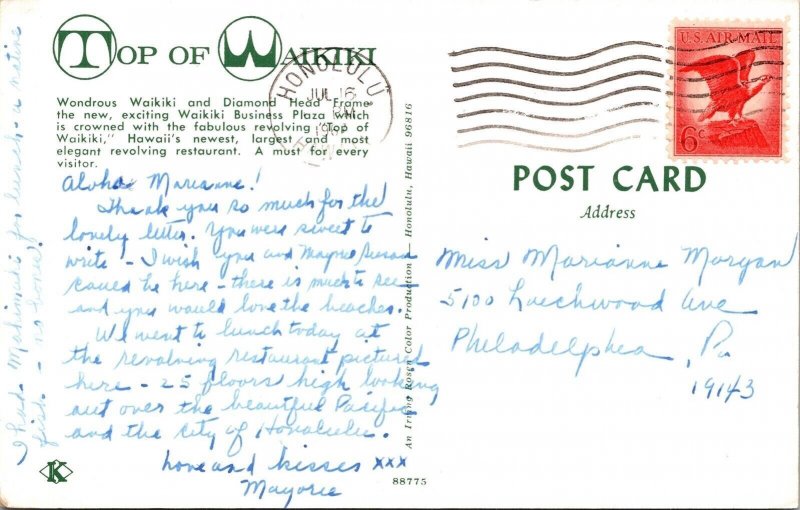 TOP OF WAIKIKI
Wondrous Waikiki and Diamond Head Frame
the new, exciting Waikiki Business Plaza which
is crowned with the fabulous revolving "Top of
Waikiki," Hawaii's newest, largest and most
elegant revolving restaurant. A must for every
visitor.
Aloha Marianne!
Thank you so much for the
lovely letter. You were sweet to
write - I wish you and Mayree Susan
could be here - there is much to see
and you would love the beaches.
We went to lunch today at
the revolving restaurant pictured
here - 25 floors high looking
out over the beautiful Pacific
and the city of Honolulu.
Love and kisses xxx
Majorie
I had Mahimahi for lunch - a native
fish - no bones!
K
88775
An Irving Rosen Color Production — Honolulu, Hawaii 96816
HONOLULU
JUL 16
PM
U.S. AIR MAIL
6c
POST CARD
Address
Miss Marianne Morgan
5100 Larchwood Ave
Philadelphia, Pa
19143